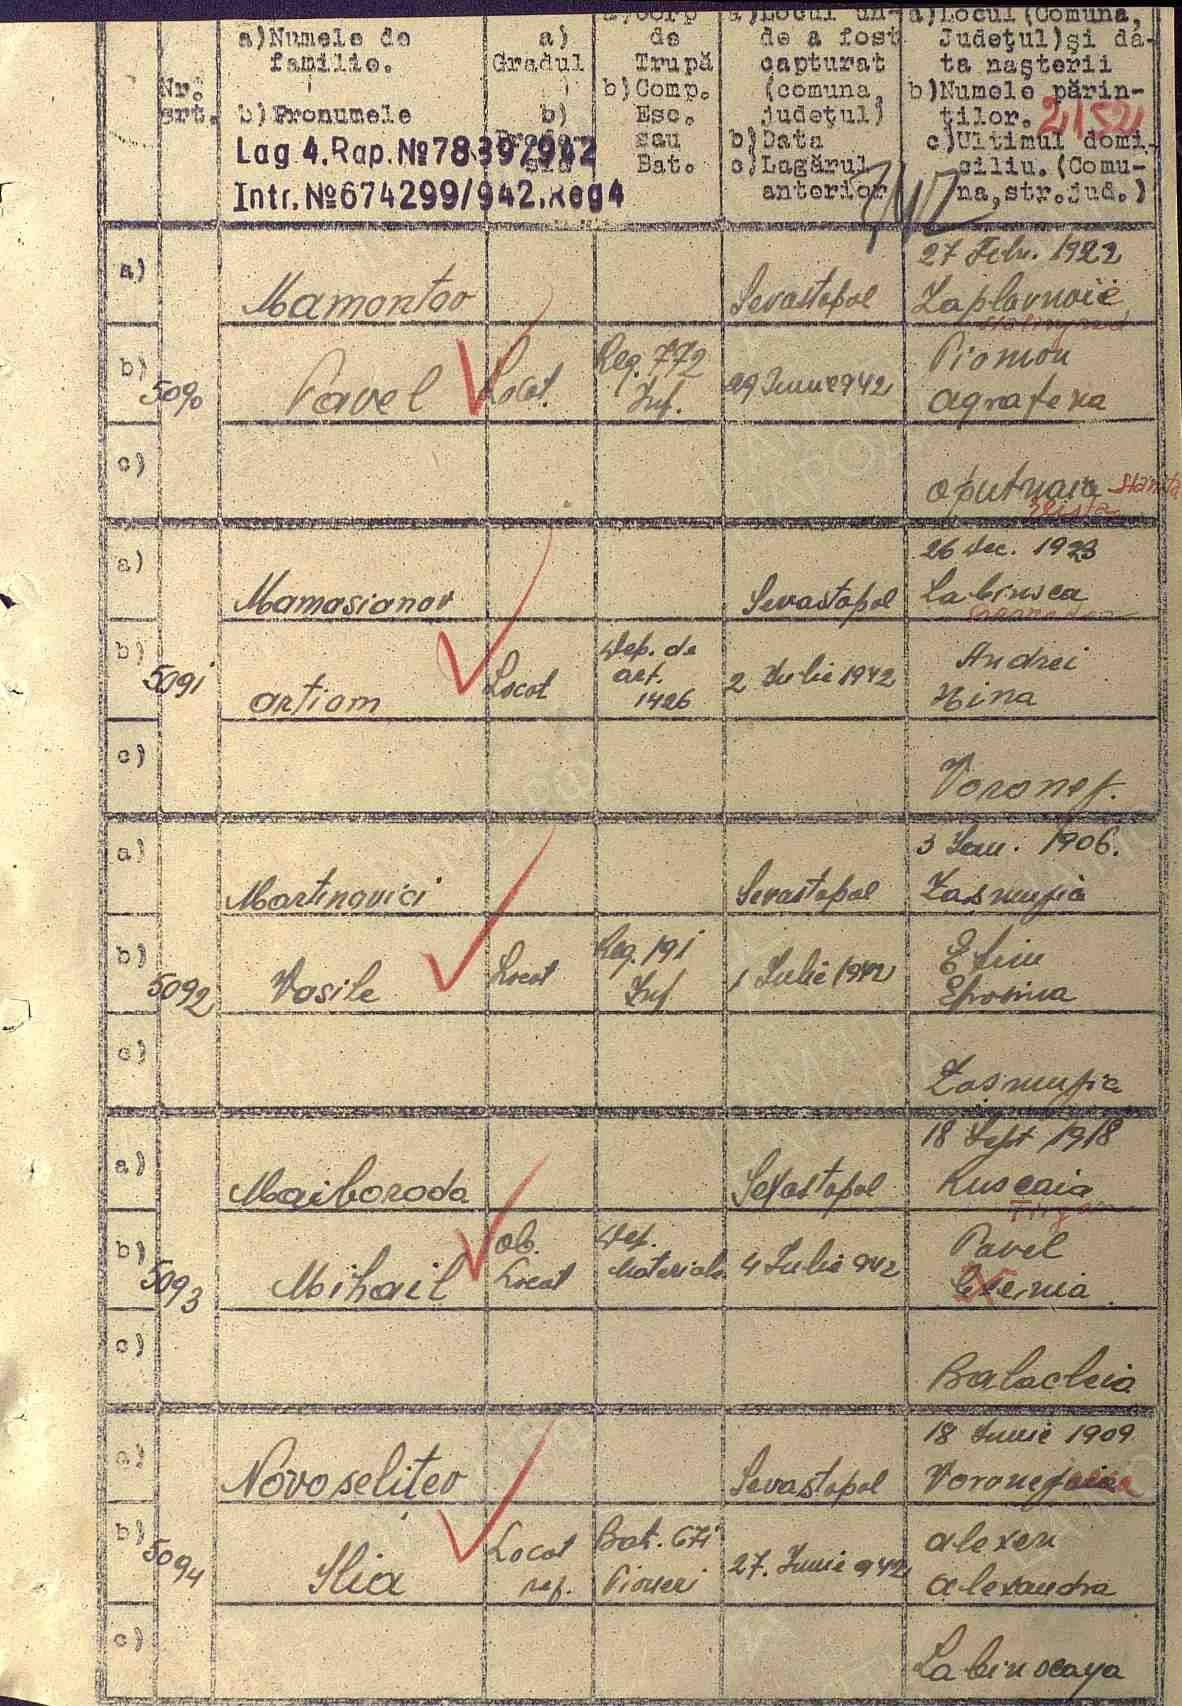 a)Numele de
familie.
b)Pronumele
Nr.
srt.
a)
Gradul
b)
de
Trupă
b)Comp.
Esc.
sau
Bat.
de a fost
capturat
(comuna,
județul)
b)Data
c)Lagărul
anterior
a)Locul(Comuna,
Județul)și da-
ta nașterii
b)Numele părin-
ților.
c)Ultimul domi-
ciliu.(Comu-
na,str.jud.)
Lag.4.Rap.№78397942
Intr.№674299/942.Reg4
a)
Mamontov
Sevastopol
27 Febr. 1922
Zaplavnoie
b)
5090
Pavel
Locot.
Reg. 772
Inf.
29 Iunie 942
Piomon
Agrafena
c)
a)
Mamasianov
Sevastopol
26 Dec. 1923
Labinsca
b)
5091
Artiom
Locot
Dep. de
art.
1426
2 Iulie 1942
Andrei
Nina
c)
Voronej.
a)
Martinovici
Sevastopol
3 Ian. 1906.
b)
5092
Vasile
Locot
Reg. 191
Inf
1 Iulie 1942
Efim
Efrosina
c)
a)
Maiboroda
Sevastopol
18 Sept 1918
Ruscaia
b)
5093
Mihail
Locot
Dep.
Materiale
4 Iulie 942
Pavel
c)
Balacleia
a)
Novoselițev
Sevastopol
18 Iunie 1909
b)
5094
Ilia
Locot
Bat. 671
Pioneri
27. Iunie 942
Alexei
Alexandra
c)
Labinscaya